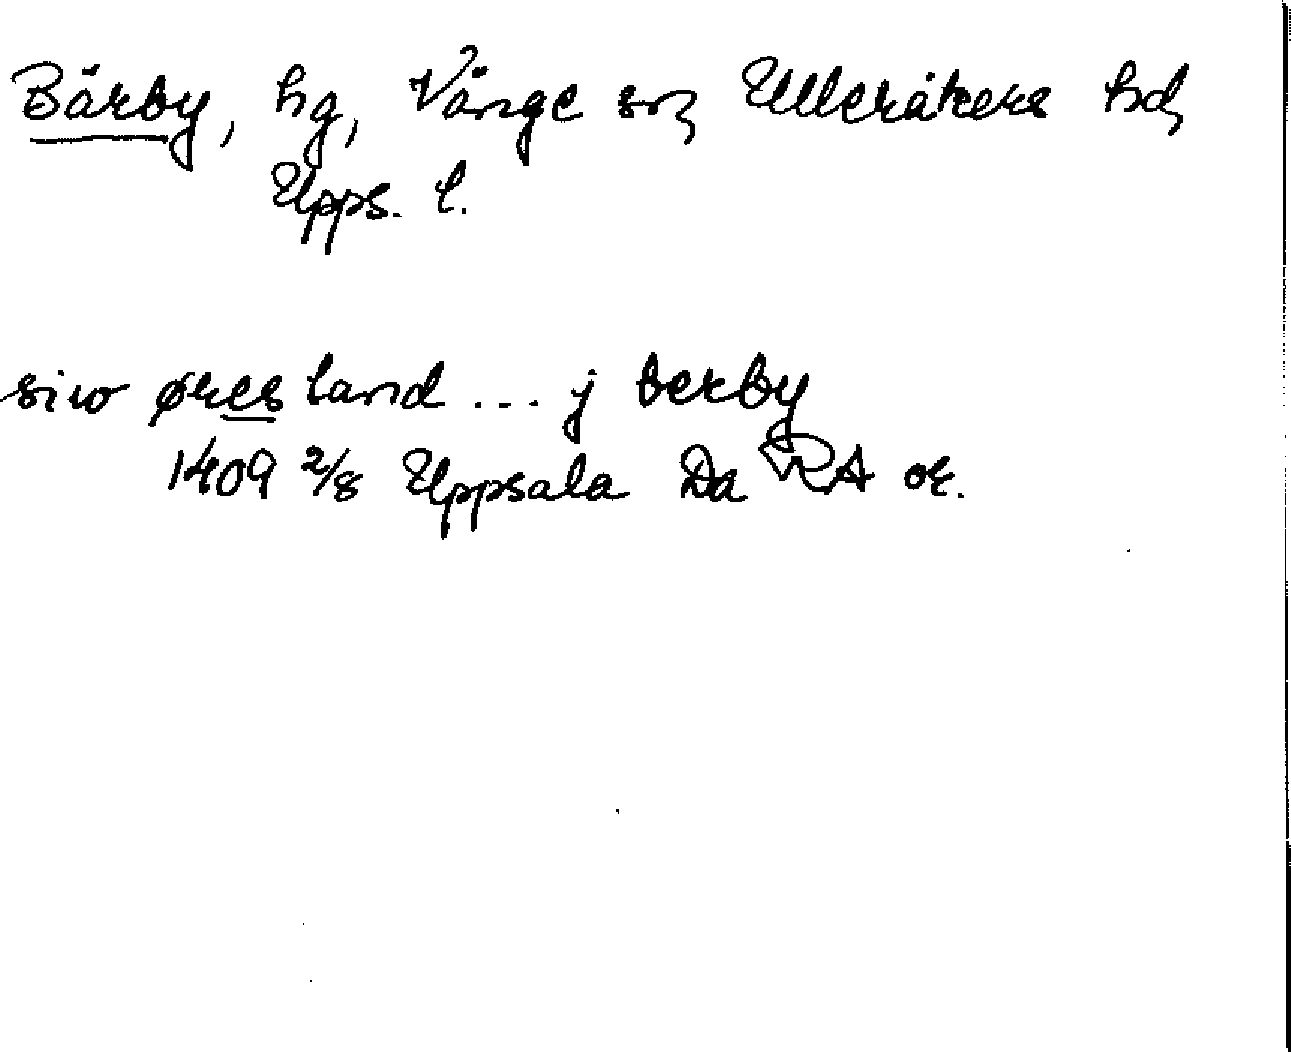 Bärby, hg, Vänge sn, Ulleråkers hd,
Upps. l.
siw øres land ... j berby
1409 2/8 Uppsala Da RA or.